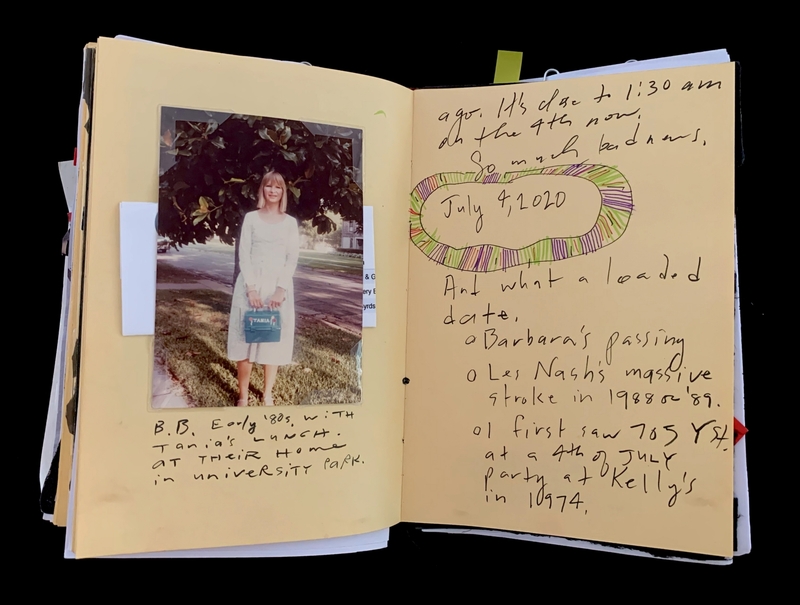 TANIA
& G
ery E
yrds
B.B. Early '80s, WITH
TANIA'S LUNCH.
AT THEIR HOME
in UNIVERSITY PARK.
ago. It's close to 1:30 am
on the 4th now.
So much bad news.
July 4, 2020
And what a loaded
date.
o Barbara's passing
o Les Nash's massive
stroke in 1988 or '89.
o I first saw 705 Yst.
at a 4th of JULY
party at Kelly's
in 1974.